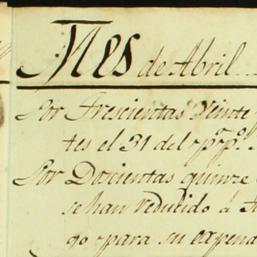 Mes de Abril
Por Trescientas Veinte
tes el 31 del
Por Docientas quinze
se han reducido á
go para su expend